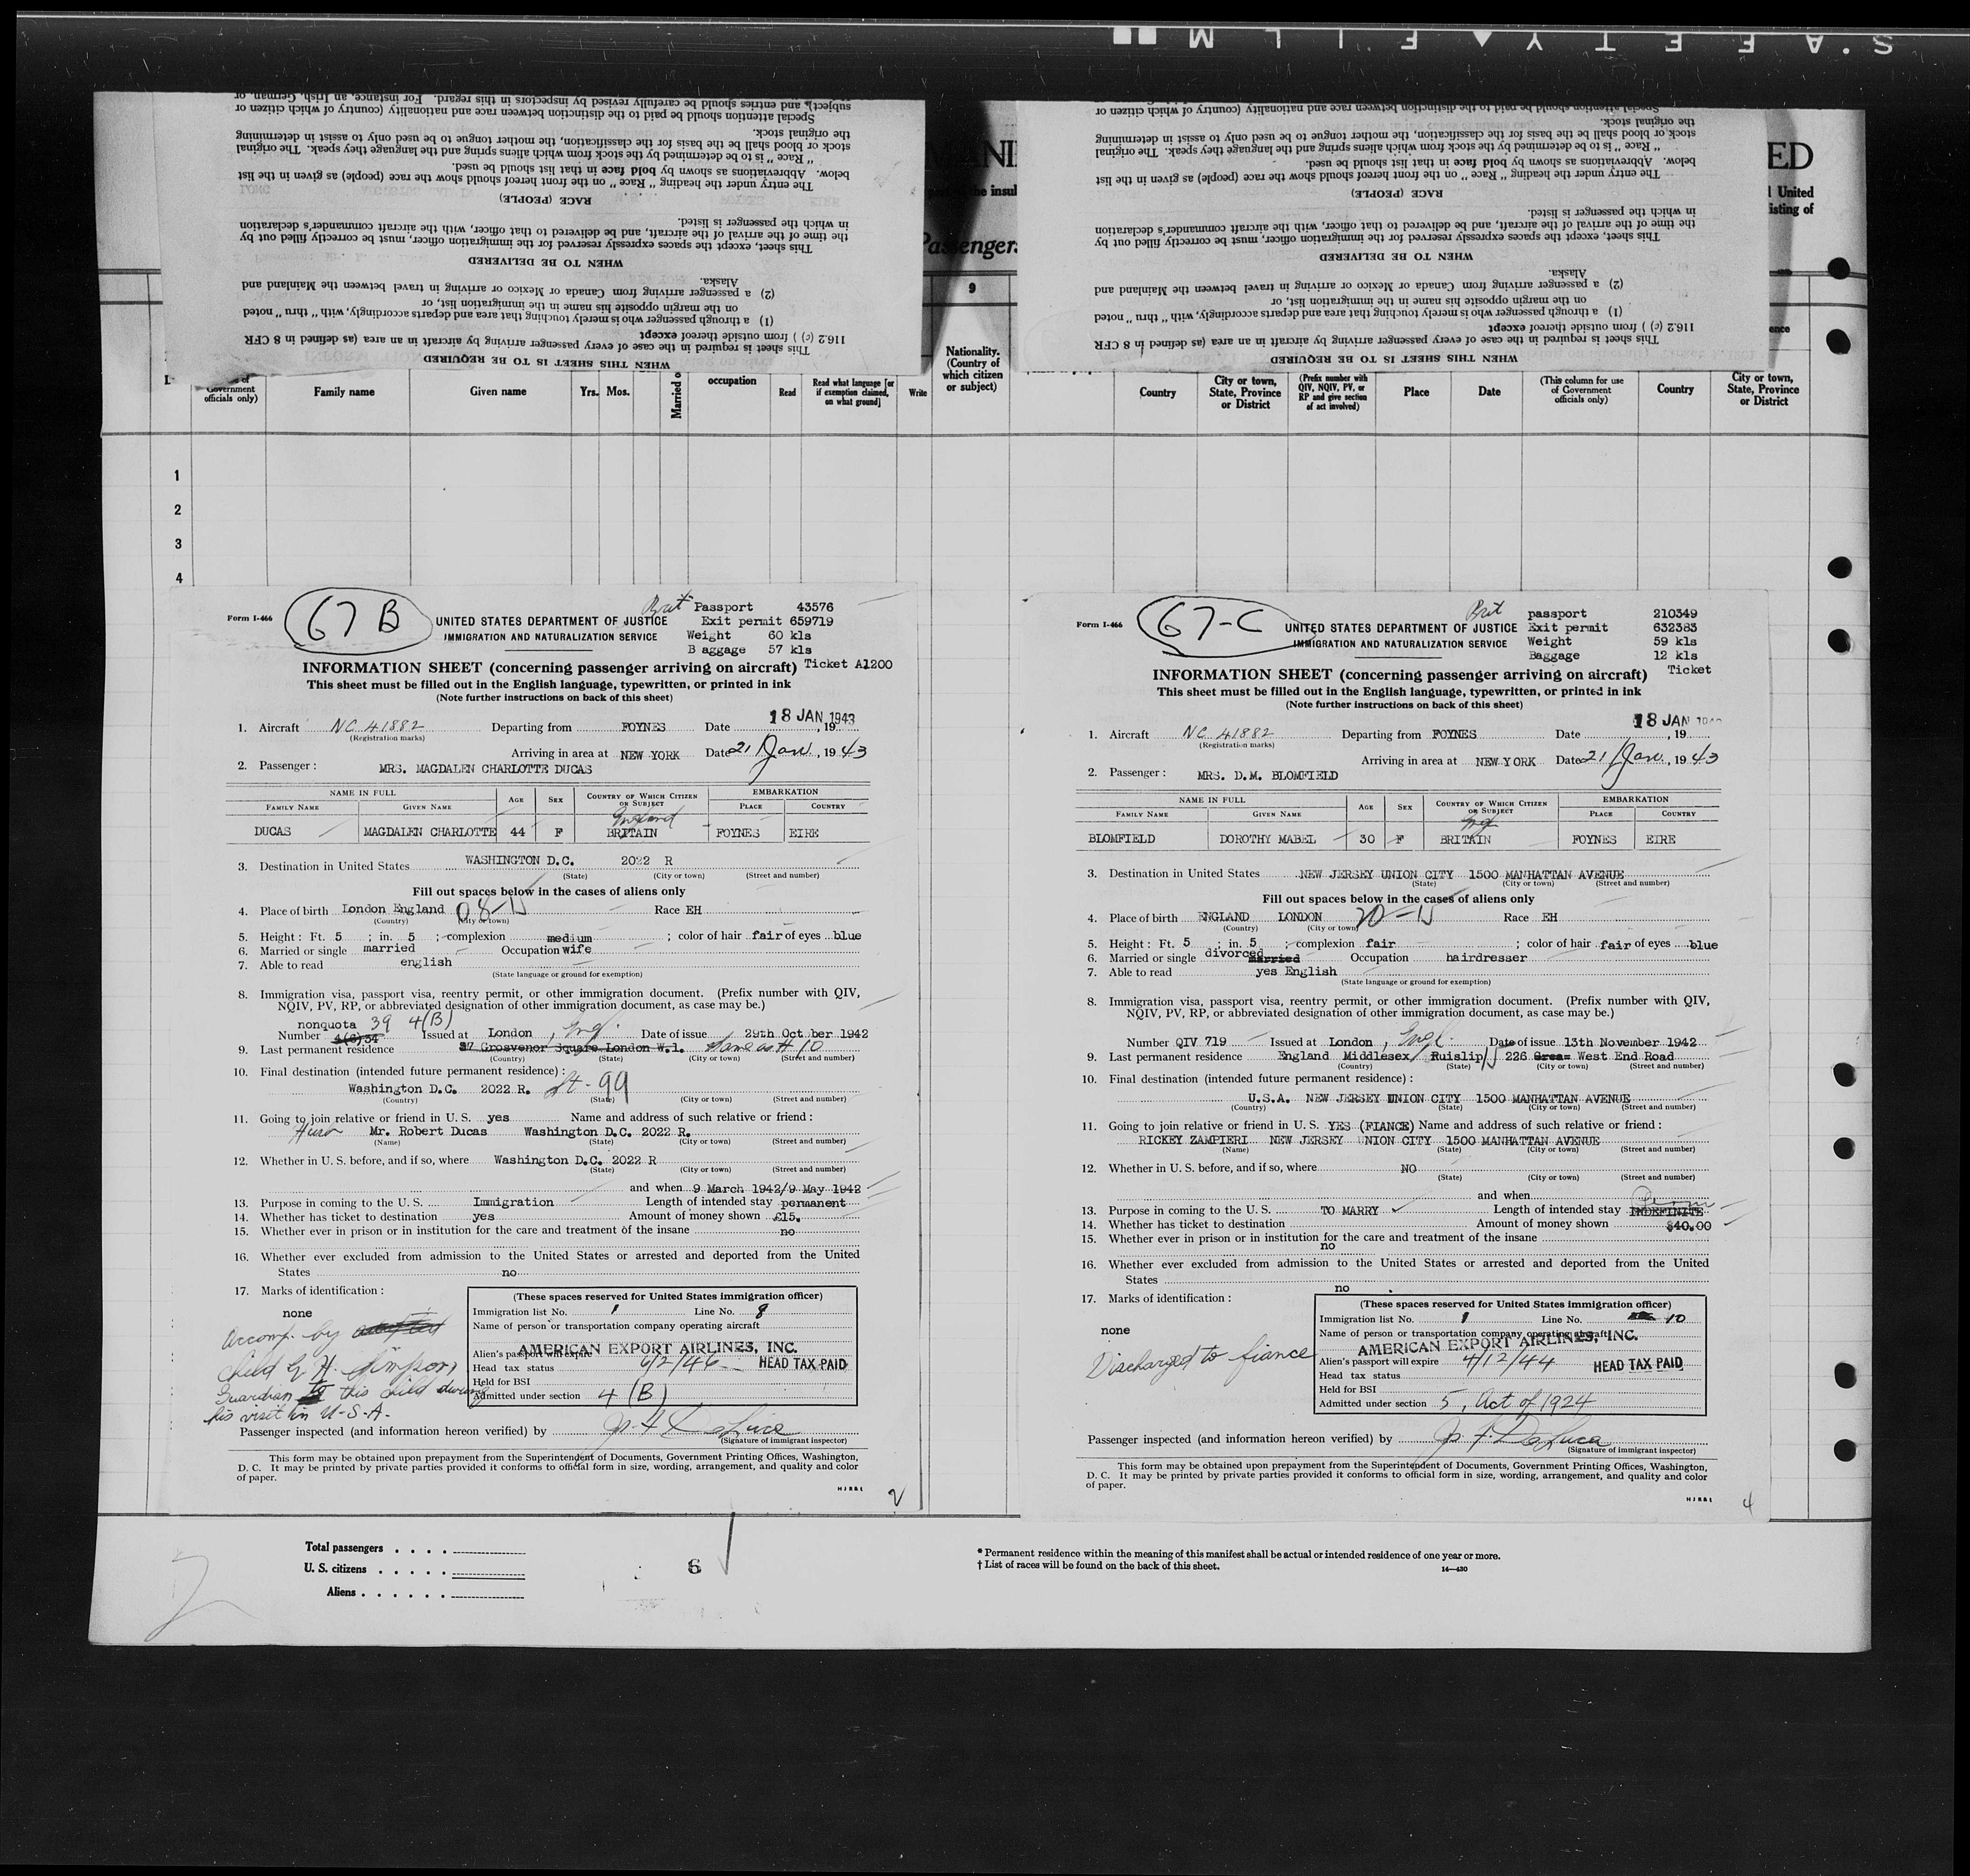 S.AFETY FILM
subject), and entries should be carefully revised by inspectors in this regard. For instance, an Irish, German, or
Special attention should be paid to the distinction between race and nationality (country of which citizen or
the original stock.
stock or blood shall be the basis for the classification, the mother tongue to be used only to assist in determining
" Race " is to be determined by the stock from which aliens spring and the language they speak. The original
below. Abbreviations as shown by bold face in that list should be used.
The entry under the heading " Race " on the front hereof should show the race (people) as given in the list
RACE (PEOPLE)
in which the passenger is listed.
the time of the arrival of the aircraft, and be delivered to that officer, with the aircraft commander's declaration
This sheet, except the spaces expressly reserved for the immigration officer, must be correctly filled out by
WHEN TO BE DELIVERED
Alaska.
(2) a passenger arriving from Canada or Mexico or arriving in travel between the Mainland and
on the margin opposite his name in the immigration list, or
(1) a through passenger who is merely touching that area and departs accordingly, with " thru " noted
116.2 (c) ) from outside thereof except
This sheet is required in the case of every passenger arriving by aircraft in an area (as defined in 8 CFR
WHEN THIS SHEET IS TO BE REQUIRED
Special attention should be paid to the distinction between race and nationality (country of which citizen or
the original stock.
stock or blood shall be the basis for the classification, the mother tongue to be used only to assist in determining
" Race " is to be determined by the stock from which aliens spring and the language they speak. The original
below. Abbreviations as shown by bold face in that list should be used.
The entry under the heading " Race " on the front hereof should show the race (people) as given in the list
RACE (PEOPLE)
in which the passenger is listed.
the time of the arrival of the aircraft, and be delivered to that officer, with the aircraft commander's declaration
This sheet, except the spaces expressly reserved for the immigration officer, must be correctly filled out by
WHEN TO BE DELIVERED
Alaska.
(2) a passenger arriving from Canada or Mexico or arriving in travel between the Mainland and
on the margin opposite his name in the immigration list, or
(1) a through passenger who is merely touching that area and departs accordingly, with " thru " noted
116.2 (c) ) from outside thereof except
This sheet is required in the case of every passenger arriving by aircraft in an area (as defined in 8 CFR
WHEN THIS SHEET IS TO BE REQUIRED
NI ED
e insul United
isting of
Passengers
9
Government officials only) Family name Given name Yrs. Mos. Married o occupation Read Read what language [or if exemption claimed, on what ground] Write Nationality. (Country of which citizen or subject)
Country City or town, State, Province or District (Prefix number with QIV, NQIV, PV, or RP and give section of act involved) Place Date (This column for use of Government officials only) Country City or town, State, Province or District
1
2
3
4
Form I-466 67 B Brit Passport 43576
UNITED STATES DEPARTMENT OF JUSTICE Exit permit 659719
IMMIGRATION AND NATURALIZATION SERVICE Weight 60 kls
B aggage 57 kls
INFORMATION SHEET (concerning passenger arriving on aircraft) Ticket A1200
This sheet must be filled out in the English language, typewritten, or printed in ink
(Note further instructions on back of this sheet)
1. Aircraft NC 41882 Departing from FOYNES Date 18 JAN 1943, 19
(Registration marks)
Arriving in area at NEW YORK Date 21 Jan., 1943
2. Passenger : MRS. MAGDALEN CHARLOTTE DUCAS
NAME IN FULL AGE SEX COUNTRY OF WHICH CITIZEN OR SUBJECT EMBARKATION
FAMILY NAME GIVEN NAME PLACE COUNTRY
England
DUCAS MAGDALEN CHARLOTTE 44 F BRITAIN FOYNES EIRE
3. Destination in United States WASHINGTON D.C. 2022 R
(State) (City or town) (Street and number)
Fill out spaces below in the cases of aliens only
4. Place of birth London England 08-15 Race EH
(Country) (City or town)
5. Height : Ft. 5 ; in. 5 ; complexion medium ; color of hair fair of eyes blue
6. Married or single married Occupation wife
7. Able to read english
(State language or ground for exemption)
8. Immigration visa, passport visa, reentry permit, or other immigration document. (Prefix number with QIV,
NQIV, PV, RP, or abbreviated designation of other immigration document, as case may be.)
nonquota 39 4(B)
Number 4(6)34 Issued at London, Eng. Date of issue 29th October 1942
9. Last permanent residence 47 Grosvenor Square London W.1. Same as # 10
(Country) (State) (City or town) (Street and number)
10. Final destination (intended future permanent residence) :
Washington D.C. 2022 R. st-99
(Country) (State) (City or town) (Street and number)
11. Going to join relative or friend in U. S. yes Name and address of such relative or friend :
Husb Mr. Robert Ducas Washington D.C. 2022 R.
(Name) (State) (City or town) (Street and number)
12. Whether in U. S. before, and if so, where Washington D.C. 2022 R
(State) (City or town) (Street and number)
and when 9 March 1942/9 May 1942
13. Purpose in coming to the U. S. Immigration Length of intended stay permanent
14. Whether has ticket to destination yes Amount of money shown £15.
15. Whether ever in prison or in institution for the care and treatment of the insane no
16. Whether ever excluded from admission to the United States or arrested and deported from the United
States no
17. Marks of identification :
none
Accomp. by
child G. H. Simpson
Guardian to this child during
his visit in U-S-A.
(These spaces reserved for United States immigration officer)
Immigration list No. 1 Line No. 8
Name of person or transportation company operating aircraft
AMERICAN EXPORT AIRLINES, INC.
Alien's passport will expire 6/2/46
Head tax status HEAD TAX PAID
Held for BSI
Admitted under section 4 (B)
Passenger inspected (and information hereon verified) by J. F. DeLuca
(Signature of immigrant inspector)
This form may be obtained upon prepayment from the Superintendent of Documents, Government Printing Offices, Washington,
D. C. It may be printed by private parties provided it conforms to official form in size, wording, arrangement, and quality and color
of paper.
2
Form I-466 67-C Brit passport 210349
UNITED STATES DEPARTMENT OF JUSTICE Exit permit 632383
IMMIGRATION AND NATURALIZATION SERVICE Weight 59 kls
Baggage 12 kls
INFORMATION SHEET (concerning passenger arriving on aircraft) Ticket
This sheet must be filled out in the English language, typewritten, or printed in ink
(Note further instructions on back of this sheet)
1. Aircraft NC 41882 Departing from FOYNES Date 18 JAN, 19
(Registration marks)
Arriving in area at NEW YORK Date 21 Jan., 1943
2. Passenger : MRS. D.M. BLOMFIELD
NAME IN FULL AGE SEX COUNTRY OF WHICH CITIZEN OR SUBJECT EMBARKATION
FAMILY NAME GIVEN NAME PLACE COUNTRY
Eng
BLOMFIELD DOROTHY MABEL 30 F BRITAIN FOYNES EIRE
3. Destination in United States NEW JERSEY UNION CITY 1500 MANHATTAN AVENUE
(State) (City or town) (Street and number)
Fill out spaces below in the cases of aliens only
4. Place of birth ENGLAND LONDON 20-15 Race EH
(Country) (City or town)
5. Height : Ft. 5 ; in. 5 ; complexion fair ; color of hair fair of eyes blue
6. Married or single divorced married Occupation hairdresser
7. Able to read yes English
(State language or ground for exemption)
8. Immigration visa, passport visa, reentry permit, or other immigration document. (Prefix number with QIV,
NQIV, PV, RP, or abbreviated designation of other immigration document, as case may be.)
Number QIV 719 Issued at London, Engl. Date of issue 13th November 1942
9. Last permanent residence England Middlesex Ruislip 15 226 West End Road
(Country) (State) (City or town) (Street and number)
10. Final destination (intended future permanent residence) :
U.S.A. NEW JERSEY UNION CITY 1500 MANHATTAN AVENUE
(Country) (State) (City or town) (Street and number)
11. Going to join relative or friend in U. S. YES (FIANCE) Name and address of such relative or friend :
RICKEY ZAMPIERI NEW JERSEY UNION CITY 1500 MANHATTAN AVENUE
(Name) (State) (City or town) (Street and number)
12. Whether in U. S. before, and if so, where NO
(State) (City or town) (Street and number)
and when
13. Purpose in coming to the U. S. TO MARRY Length of intended stay INDEFINITE Perm
14. Whether has ticket to destination Amount of money shown $40.00
15. Whether ever in prison or in institution for the care and treatment of the insane
no
16. Whether ever excluded from admission to the United States or arrested and deported from the United
States
no
17. Marks of identification :
none
Discharged to fiance
(These spaces reserved for United States immigration officer)
Immigration list No. 1 Line No. 10
Name of person or transportation company operating aircraft
AMERICAN EXPORT AIRLINES, INC.
Alien's passport will expire 4/12/44
Head tax status HEAD TAX PAID
Held for BSI
Admitted under section 5, Act of 1924
Passenger inspected (and information hereon verified) by J. F. DeLuca
(Signature of immigrant inspector)
This form may be obtained upon prepayment from the Superintendent of Documents, Government Printing Offices, Washington,
D. C. It may be printed by private parties provided it conforms to official form in size, wording, arrangement, and quality and color
of paper.
4
Total passengers
U. S. citizens
Aliens
6
* Permanent residence within the meaning of this manifest shall be actual or intended residence of one year or more.
† List of races will be found on the back of this sheet.
14—430